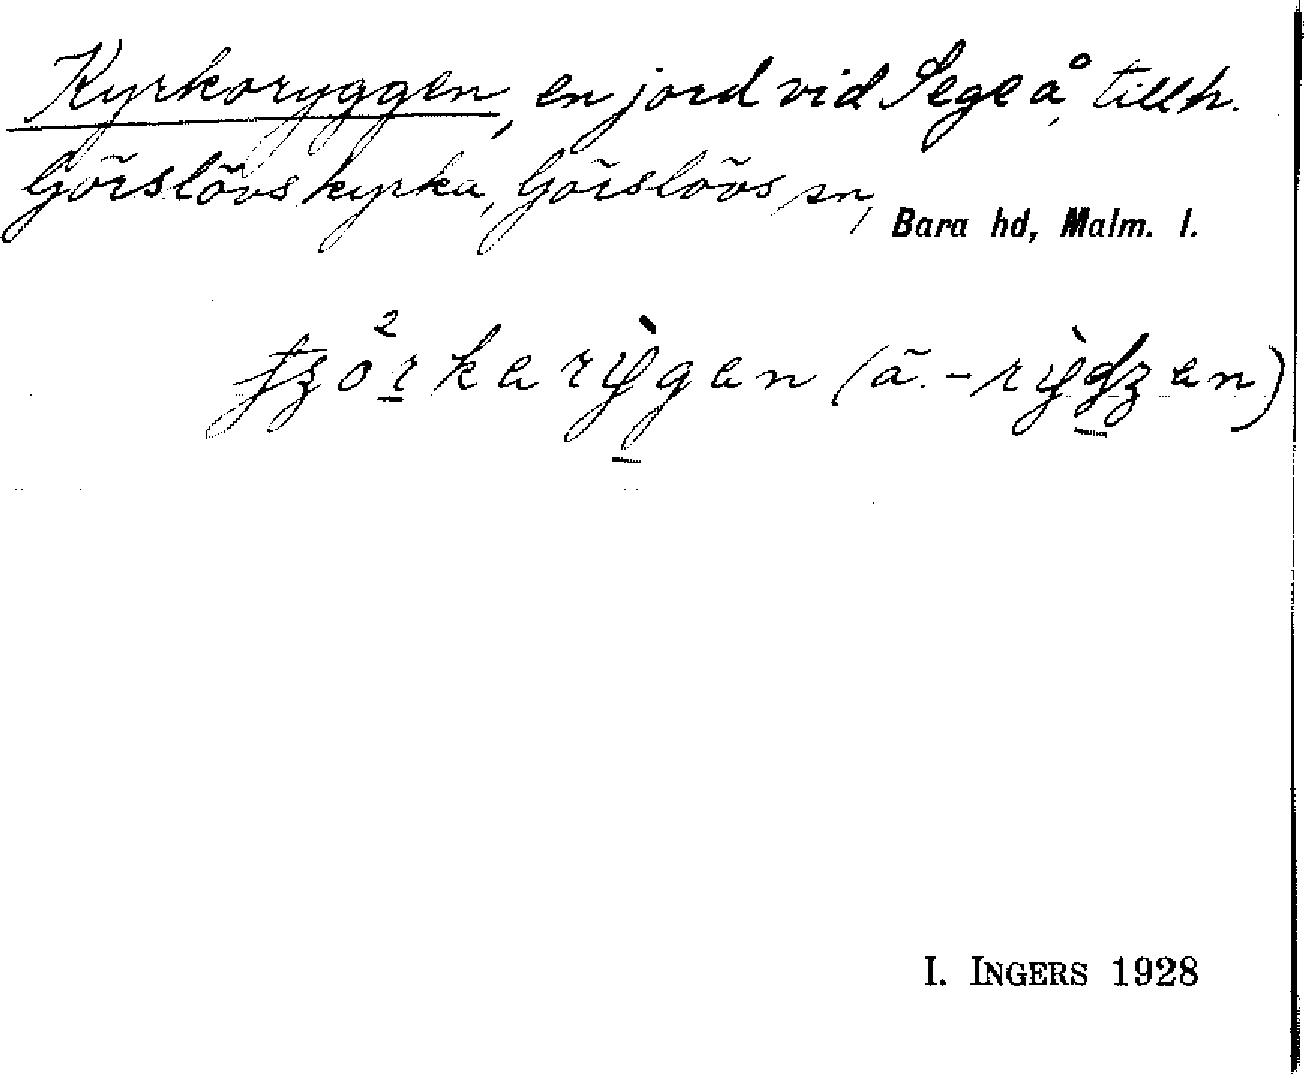 Kyrkoryggen, en jord vid Sege å, tillh.
Görslövs kyrka, Görslövs sn, Bara hd, Malm. l.
I. INGERS 1928